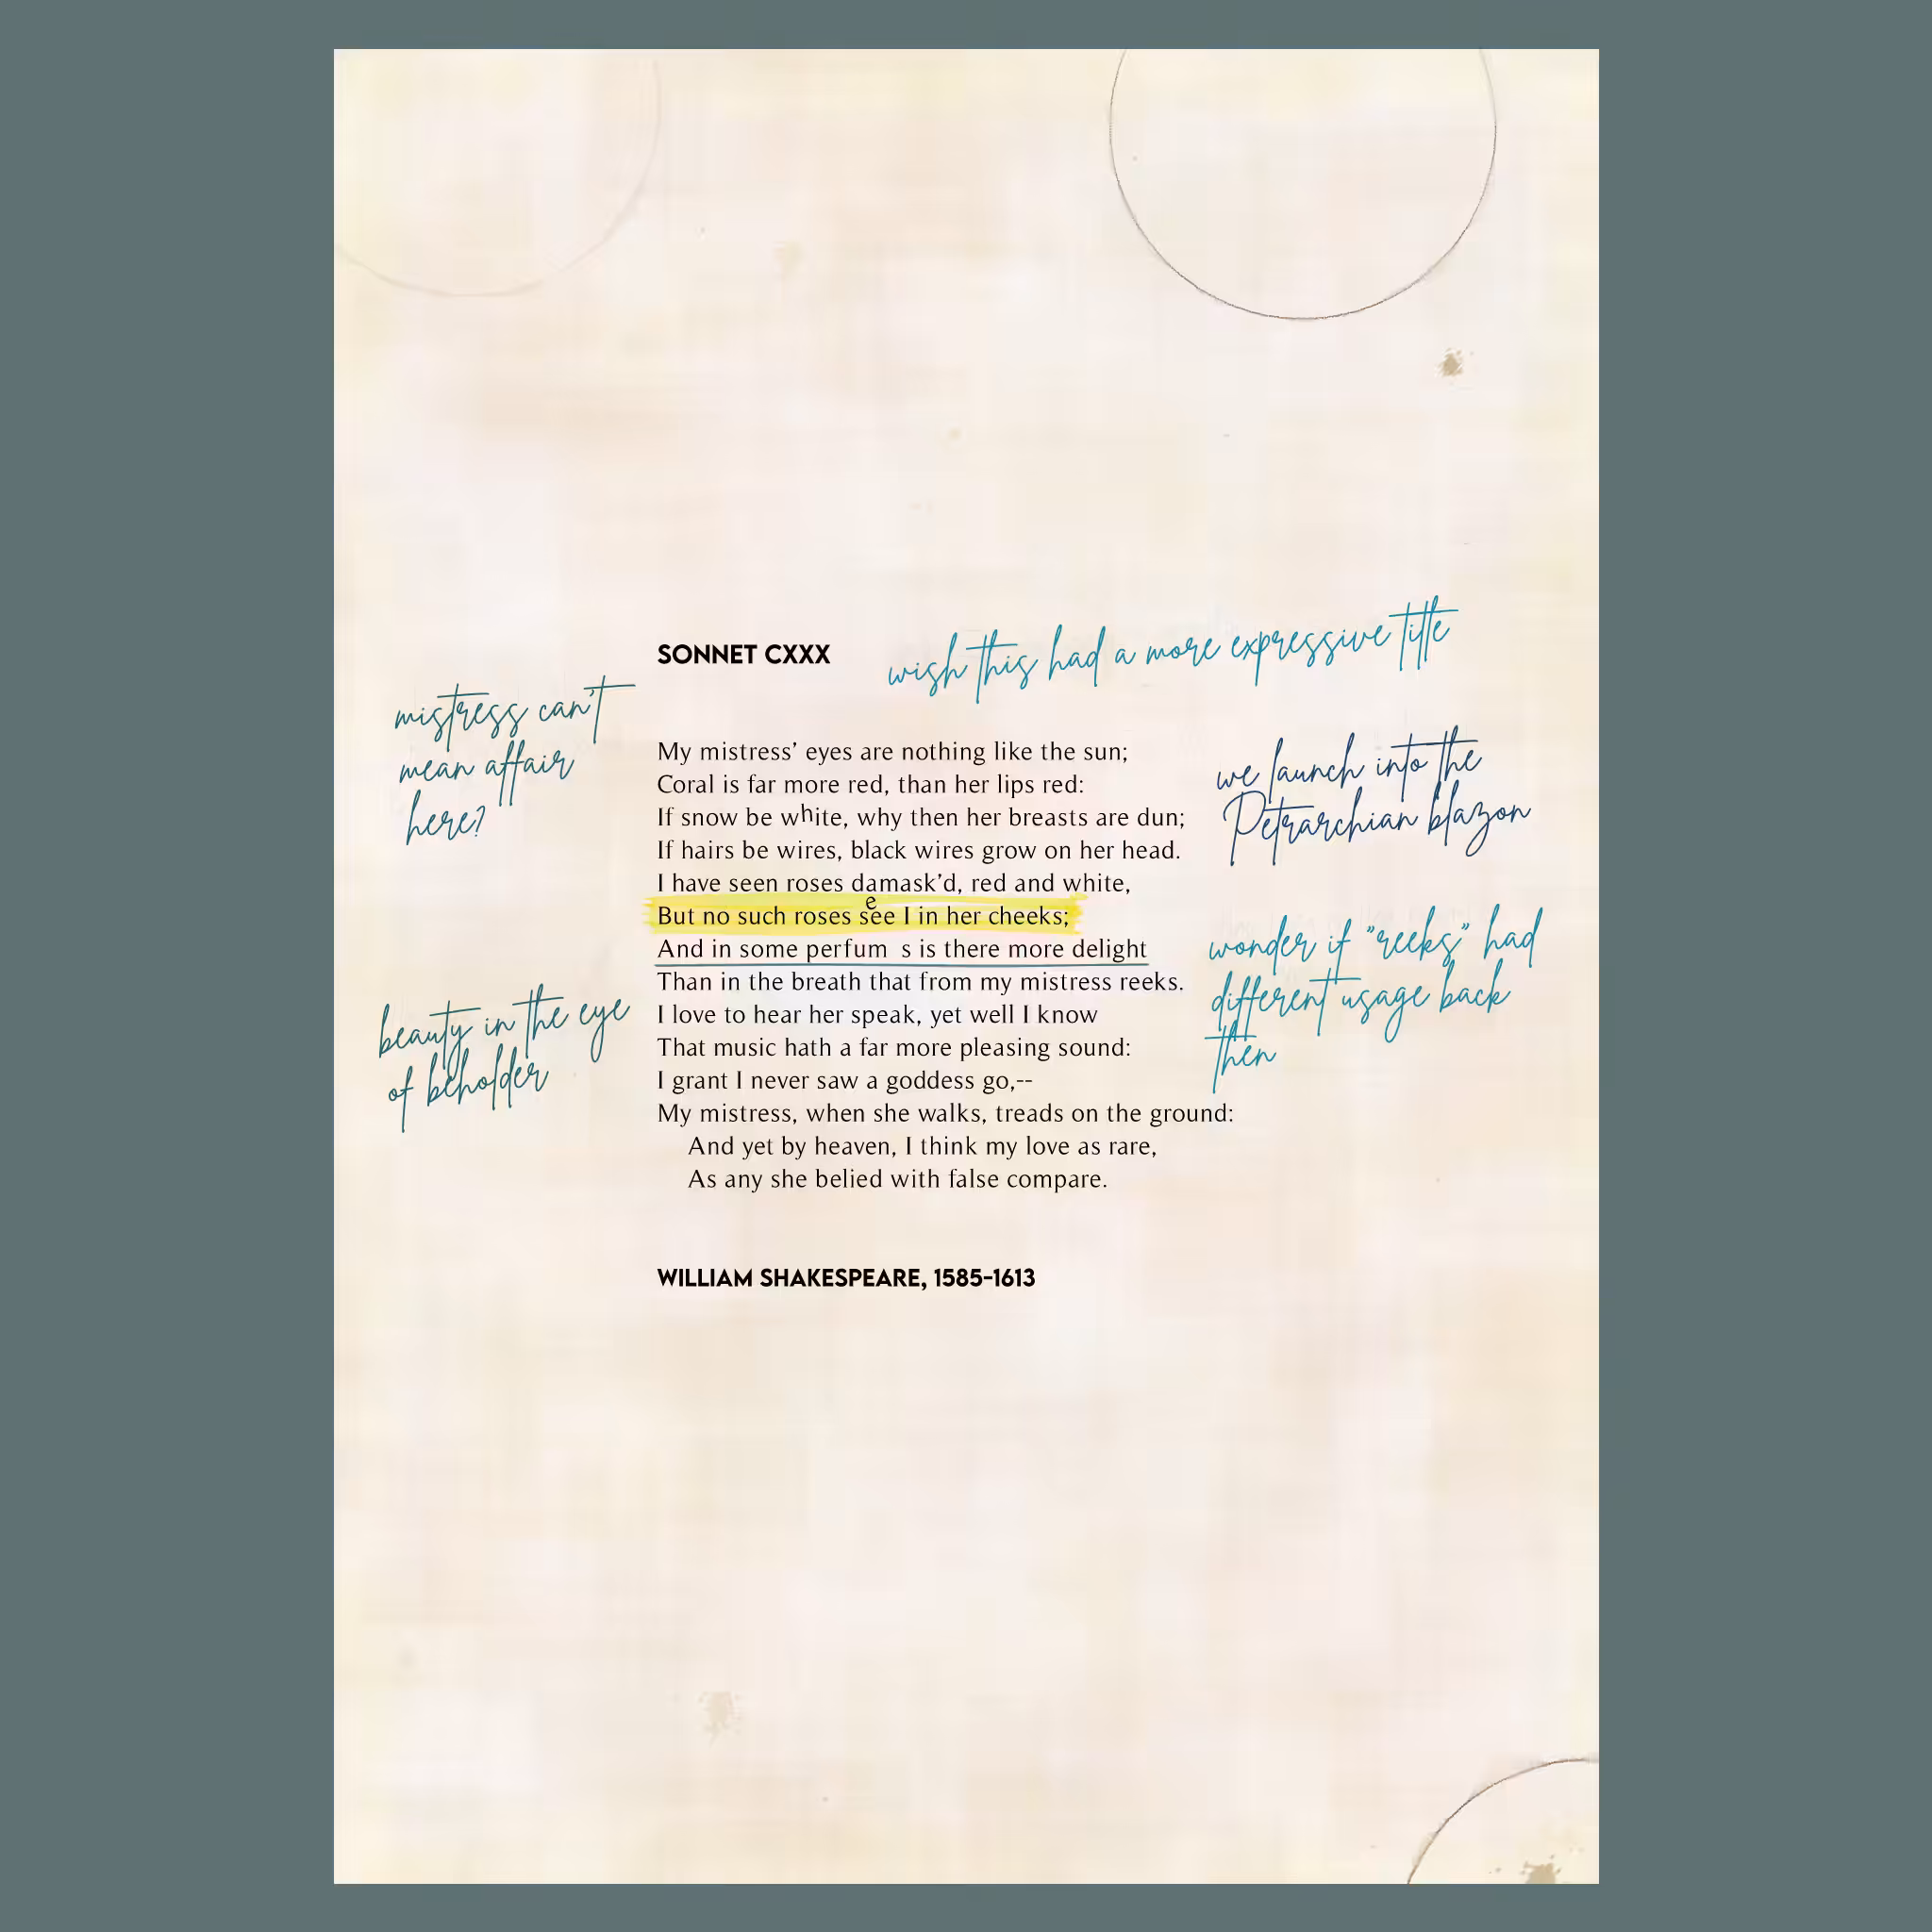 SONNET CXXX
wish this had a more expressive title
mistress can't
mean affair
here?
My mistress’ eyes are nothing like the sun;
Coral is far more red, than her lips red:
If snow be white, why then her breasts are dun;
If hairs be wires, black wires grow on her head.
I have seen roses damask’d, red and white,
But no such roses see I in her cheeks;
And in some perfum e s is there more delight
Than in the breath that from my mistress reeks.
I love to hear her speak, yet well I know
That music hath a far more pleasing sound:
I grant I never saw a goddess go,--
My mistress, when she walks, treads on the ground:
And yet by heaven, I think my love as rare,
As any she belied with false compare.
we launch into the
Petrarchian blazon
wonder if "reeks" had
different usage back
then
beauty in the eye
of beholder
WILLIAM SHAKESPEARE, 1585-1613